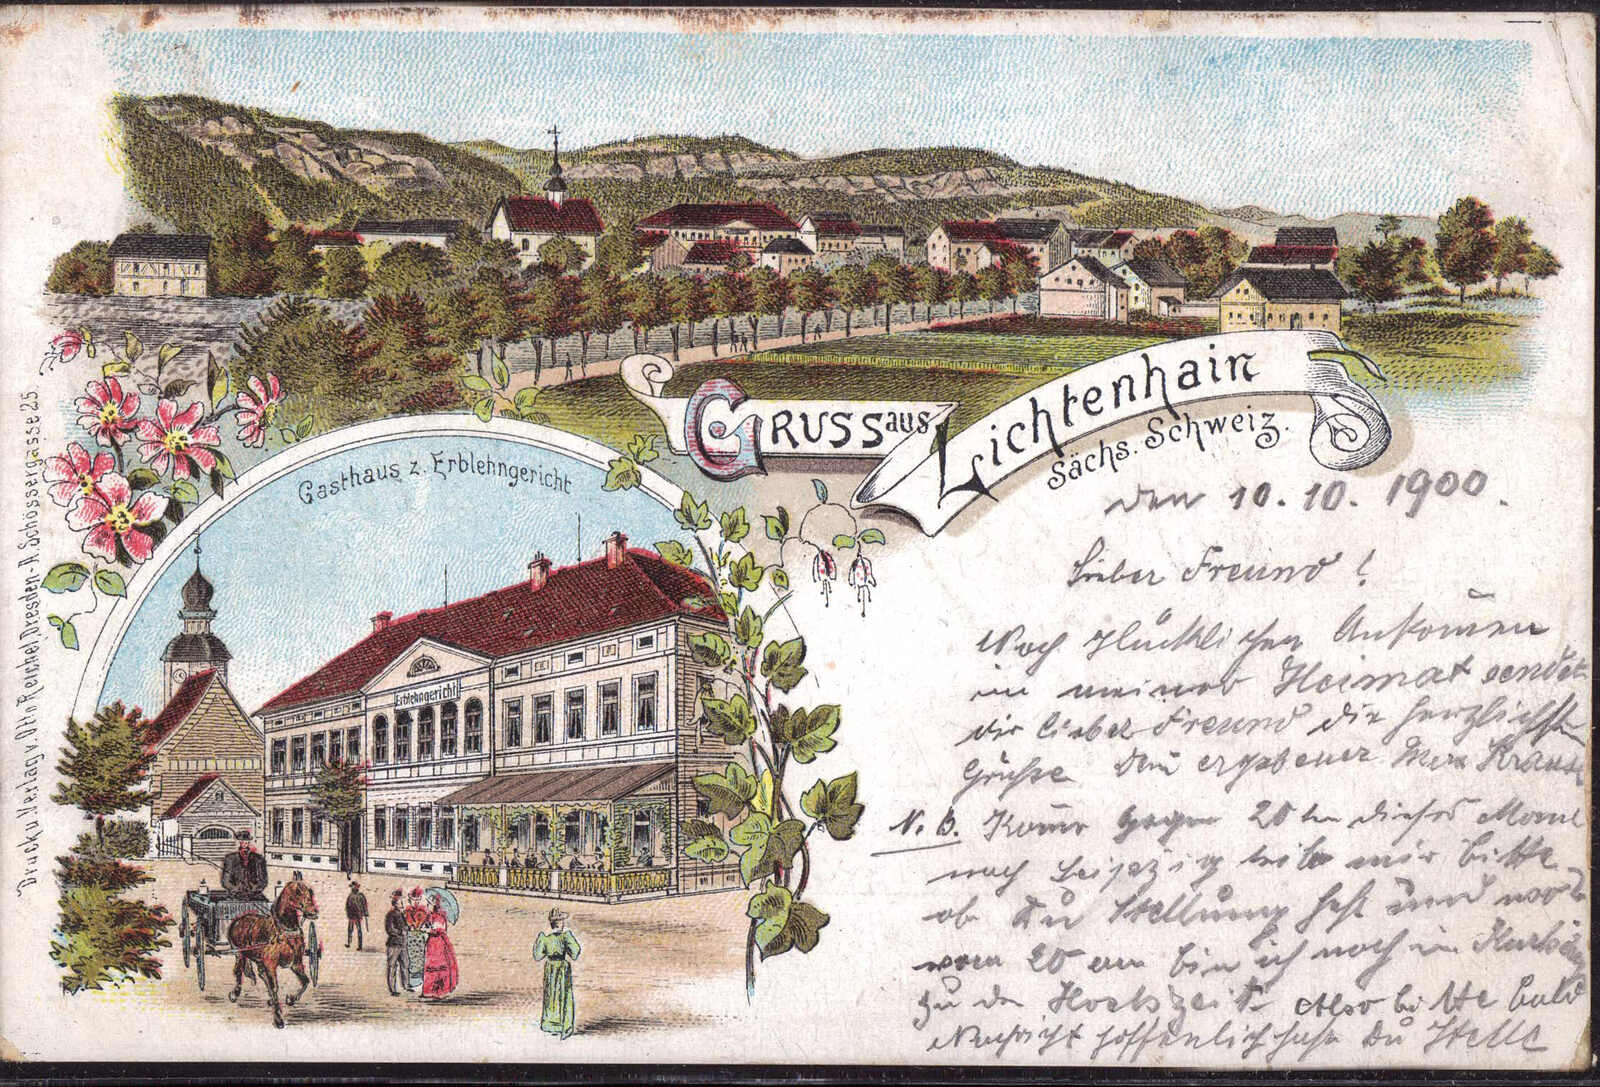 GRUSS aus
Lichtenhain
Sächs. Schweiz.
Gasthaus z. Erblehngericht
Erblehngericht
Druck u. Verlag v. Otto Reichel, Dresden-A. Schössergasse 25.
den 10. 10. 1900.
Lieber Freund!
Nach Glücklichen Ankom̄en
in meiner Heimat sendet
dir lieber Freund die herzlichsten
Grüße dein ergebener Max Kraus
N.B. Kom̄e gegen 20 ten dieses Monat
nach Leipzig bitte
ob Du Stellung hast und
vom 20 an bin ich noch in
zu der Hochzeit. Also bitte bald
Nachricht hoffentlich hast Du Stelle